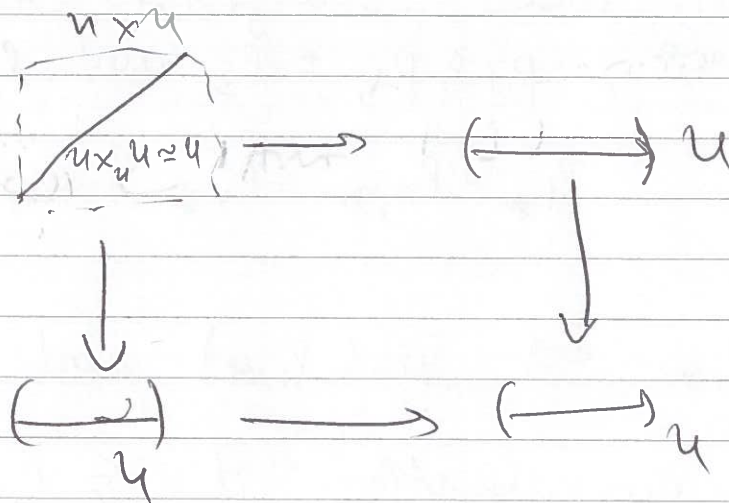 U × U
U ×_U U ≃ U
U
U
U